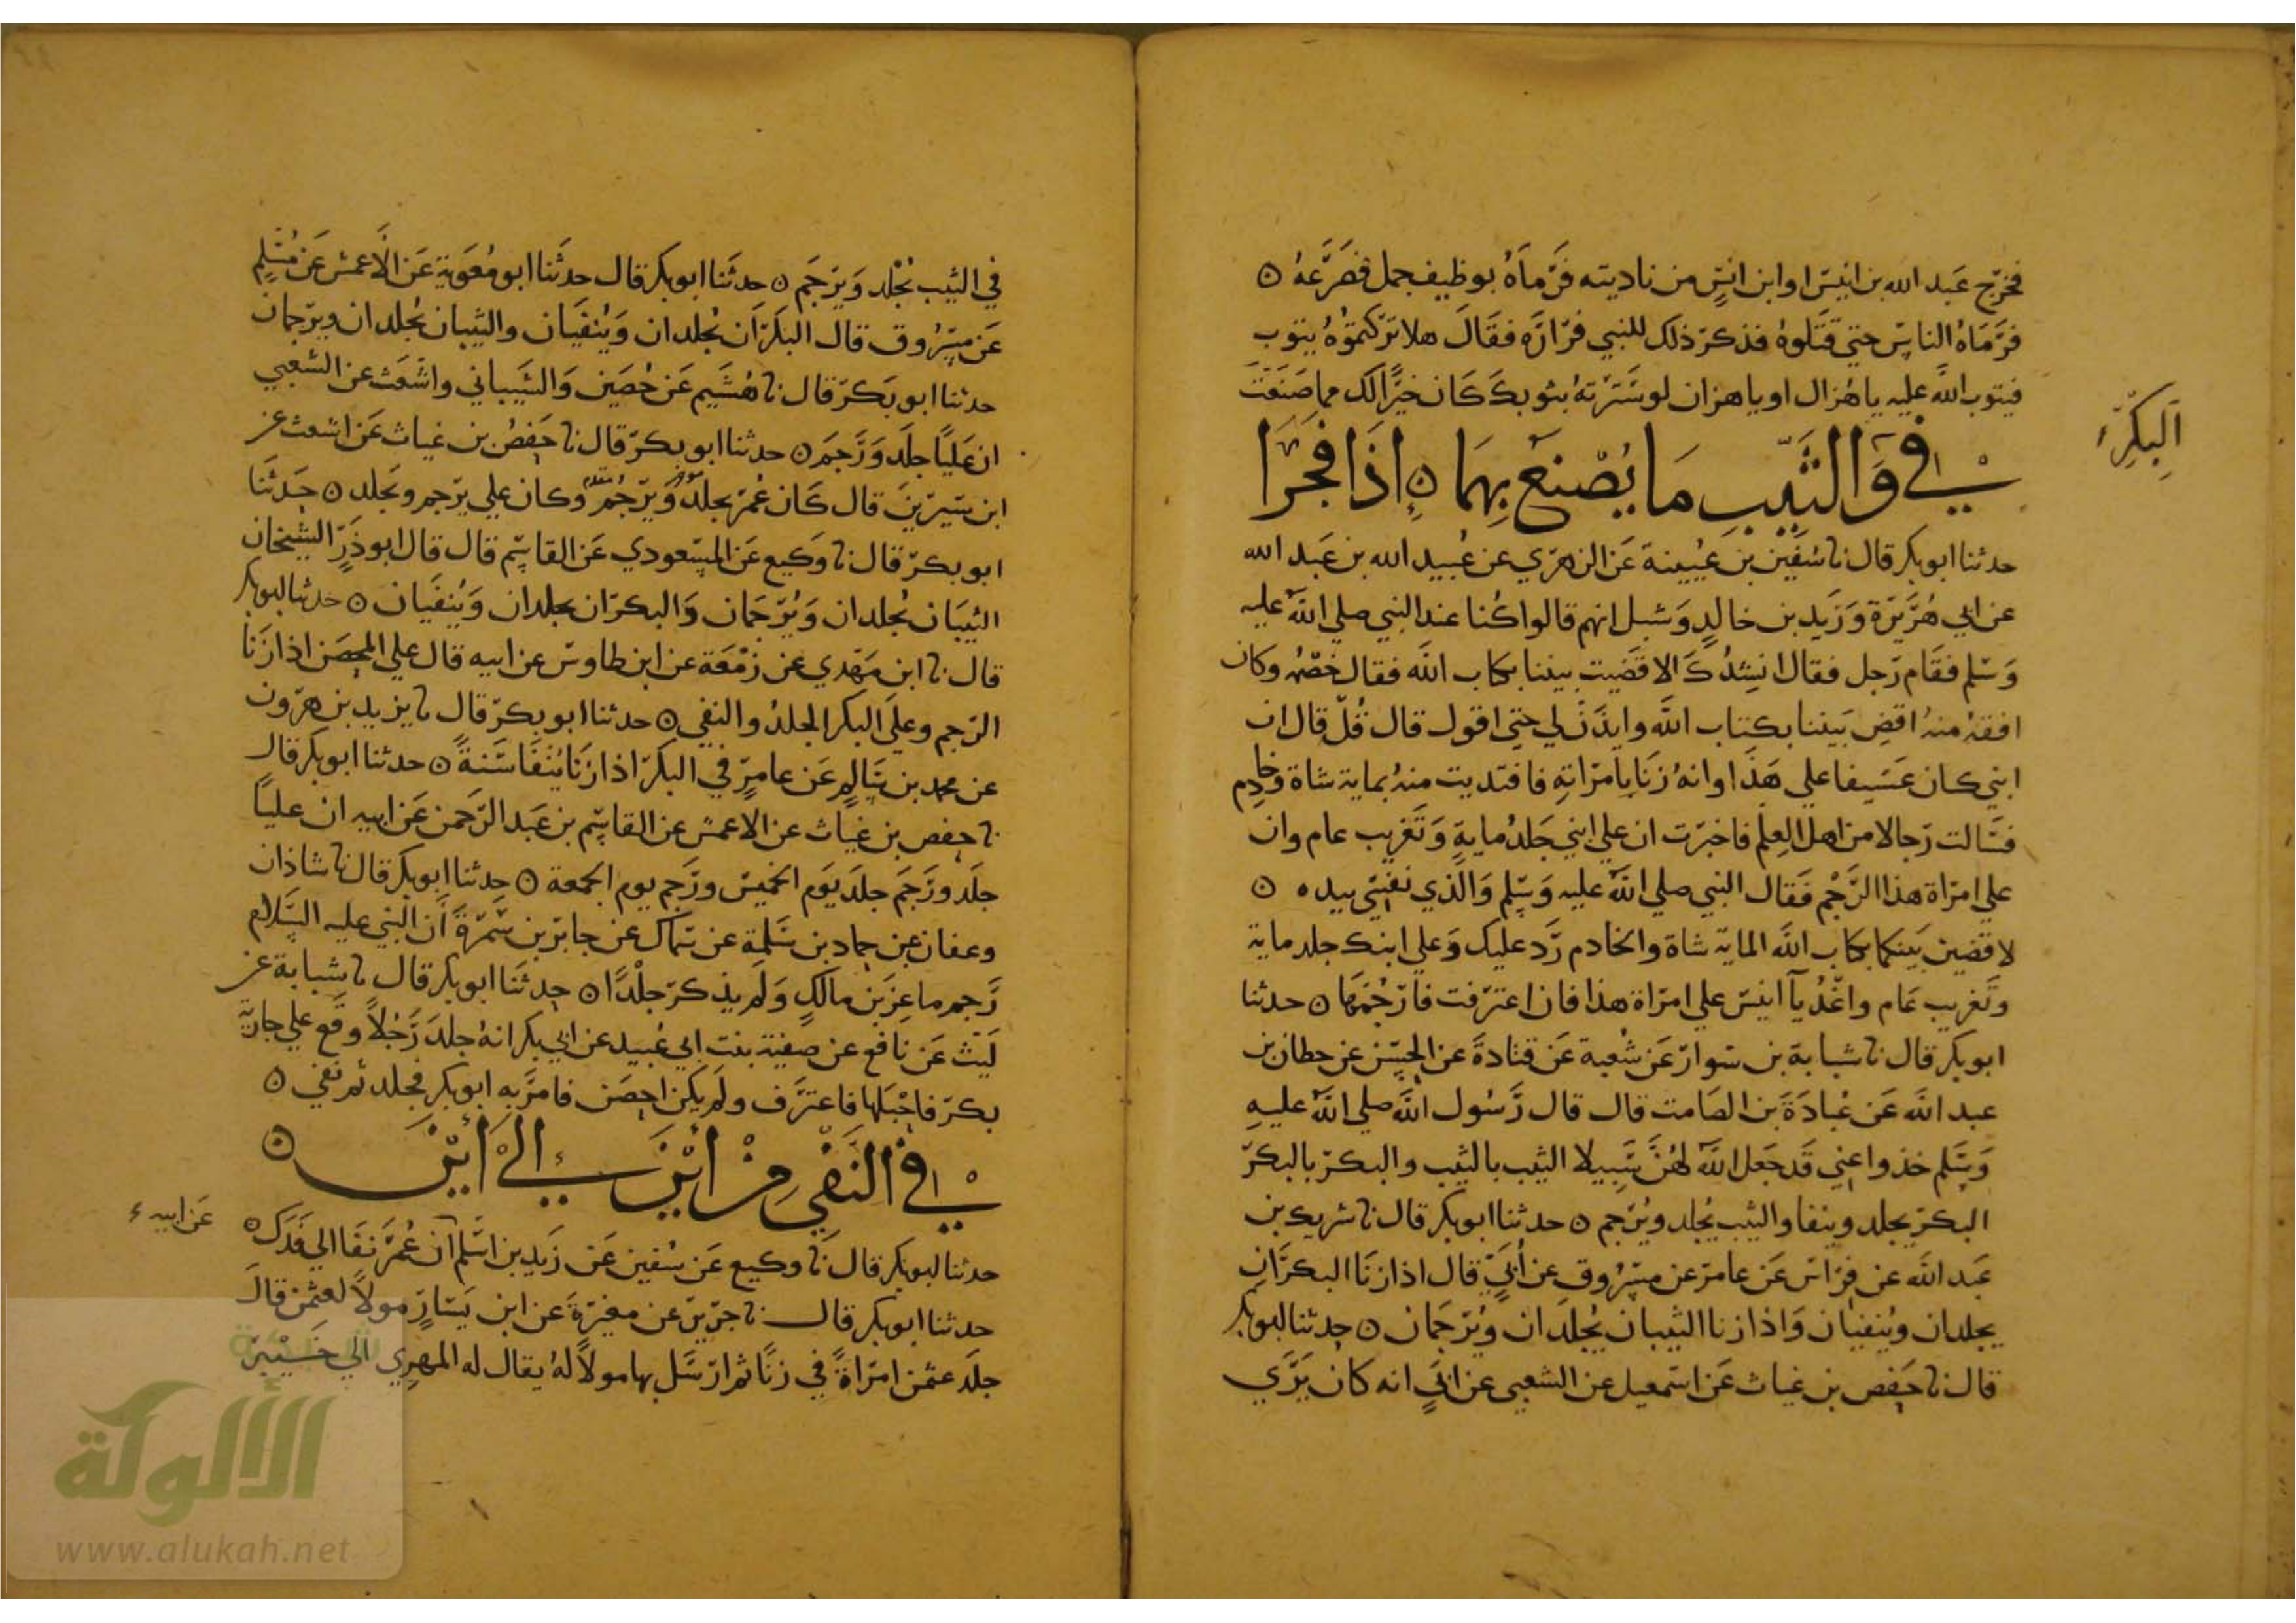 فخرج عبد الله بن انيس او ابن انس من ناديته فرماه بوظيف جمل فصرعه ۝
فرماه الناس حتي قتلوه فذكر ذلك للنبي فراره فقال هلا تركتموه يتوب
فيتوب الله عليه يا هزال او يا هزان لو سترته بثوبك كان خيرا لك مما صنعت
البكر
في والثيب ما يصنع بهما ۝ إذا فجرا
حدثنا ابو بكر قال نا سفين بن عيينة عن الزهري عن عبيد الله بن عبد الله
عن ابي هريرة وزيد بن خالد وشبل انهم قالوا كنا عند النبي صلي الله عليه
وسلم فقام رجل فقال انشدك الا قضيت بيننا بكتاب الله فقال خصمه وكان
افقه منه اقض بيننا بكتاب الله وايذن لي حتي اقول قال قل قال ان
ابني كان عسيفا علي هذا وانه زنا بامراته فافتديت منه بماية شاة وخادم
فسالت رجالا من اهل العلم فاخبرت ان علي ابني جلد ماية وتغريب عام وان
علي امراة هذا الرجم فقال النبي صلي الله عليه وسلم والذي نفسي بيده ۝
لاقضين بينكما بكتاب الله الماية شاة والخادم رد عليك وعلي ابنك جلد ماية
وتغريب عام واغد يآ انيس علي امراة هذا فان اعترفت فارجمها ۝ حدثنا
ابو بكر قال نا شبابة بن سوار عن شعبة عن قتادة عن الحسن عن حطان بن
عبد الله عن عبادة بن الصامت قال قال رسول الله صلي الله عليه
وسلم خذوا عني قد جعل الله لهن سبيلا الثيب بالثيب والبكر بالبكر
البكر يجلد وينفا والثيب يجلد ويرجم ۝ حدثنا ابو بكر قال نا شريك بن
عبد الله عن فراس عن عامر عن مسروق عن أبي قال اذا زنا البكران
يجلدان وينفيان واذا زنا الثيبان يجلدان ويرجمان ۝ حدثنا ابو بكر
قال نا حفص بن غياث عن اسمعيل عن الشعبي عن ابي انه كان يري
في الثيب يجلد ويرجم ۝ حدثنا ابو بكر قال حدثنا ابو معوية عن الاعمش عن مسلم
عن مسروق قال البكران يجلدان وينفيان والثيبان يجلدان ويرجمان
حدثنا ابو بكر قال نا هشيم عن حصين والشيباني واشعث عن الشعبي
ان عليا جلد ورجم ۝ حدثنا ابو بكر قال نا حفص بن غياث عن اشعث عن
ابن سيرين قال كان عمر يجلد ويرجم وكان علي يرجم ويجلد ۝ حدثنا
ابو بكر قال نا وكيع عن المسعودي عن القاسم قال قال ابو ذر الشيخان
الثيبان يجلدان ويرجمان والبكران يجلدان وينفيان ۝ حدثنا ابو بكر
قال نا ابن مهدي عن زمعة عن ابن طاوس عن ابيه قال علي المحصن اذا زنا
الرجم وعلي البكر الجلد والنفي ۝ حدثنا ابو بكر قال نا يزيد بن هرون
عن محمد بن سالم عن عامر في البكر اذا زنا ينفا سنة ۝ حدثنا ابو بكر قال
نا حفص بن غياث عن الاعمش عن القاسم بن عبد الرحمن عن ابيه ان عليا
جلد ورجم جلد يوم الخميس ورجم يوم الجمعة ۝ حدثنا ابو بكر قال نا شاذان
وعفان عن حماد بن سلمة عن سماك عن جابر بن سمرة أن النبي عليه السلام
رجم ماعز بن مالك ولم يذكر جلدا ۝ حدثنا ابو بكر قال نا شبابة عن
ليث عن نافع عن صفية بنت ابي عبيد عن ابي بكر انه جلد رجلا وقع علي جارية
بكر فاحبلها فاعترف ولم يكن احصن فامر به ابو بكر فجلد ثم نفي ۝
في النفي من أين الي أين ۝
حدثنا ابو بكر قال نا وكيع عن سفين عن زيد بن اسلم أن عمر نفا الي فدك ۝
عن ابيه
حدثنا ابو بكر قال نا جرير عن مغيرة عن ابن يسار مولا لعثمن قال
جلد عثمن امراة في زنا ثم ارسل بها مولا له يقال له المهري الي خيبر
شبكة
الألوكة
www.alukah.net